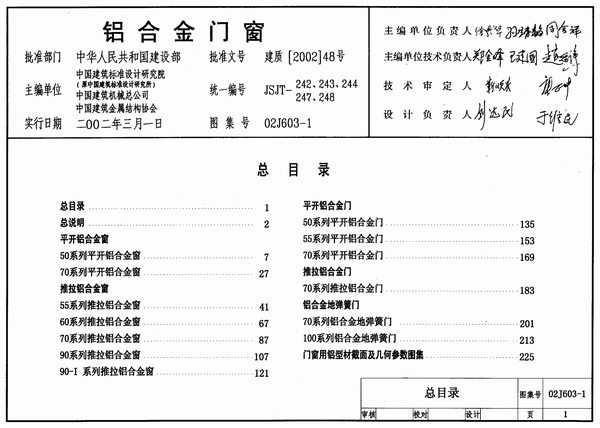 铝合金门窗
批准部门 中华人民共和国建设部 批准文号 建质[2002]48号
主编单位 中国建筑标准设计研究院
(原中国建筑标准设计研究所)
中国建筑机械总公司
中国建筑金属结构协会
统一编号 JSJT-242、243、244
247、248
实行日期 二00二年三月一日 图集号 02J603-1
主编单位负责人
主编单位技术负责人
技术审定人
设计负责人
总目录
总目录 1
总说明 2
平开铝合金窗
50系列平开铝合金窗 7
70系列平开铝合金窗 27
推拉铝合金窗
55系列推拉铝合金窗 41
60系列推拉铝合金窗 67
70系列推拉铝合金窗 87
90系列推拉铝合金窗 107
90-I 系列推拉铝合金窗 121
平开铝合金门
50系列平开铝合金门 135
55系列平开铝合金门 153
70系列平开铝合金门 169
推拉铝合金门
70系列推拉铝合金门 183
铝合金地弹簧门
70系列铝合金地弹簧门 201
100系列铝合金地弹簧门 213
门窗用铝型材截面及几何参数图集 225
总目录 图集号 02J603-1
审核 校对 设计 页 1